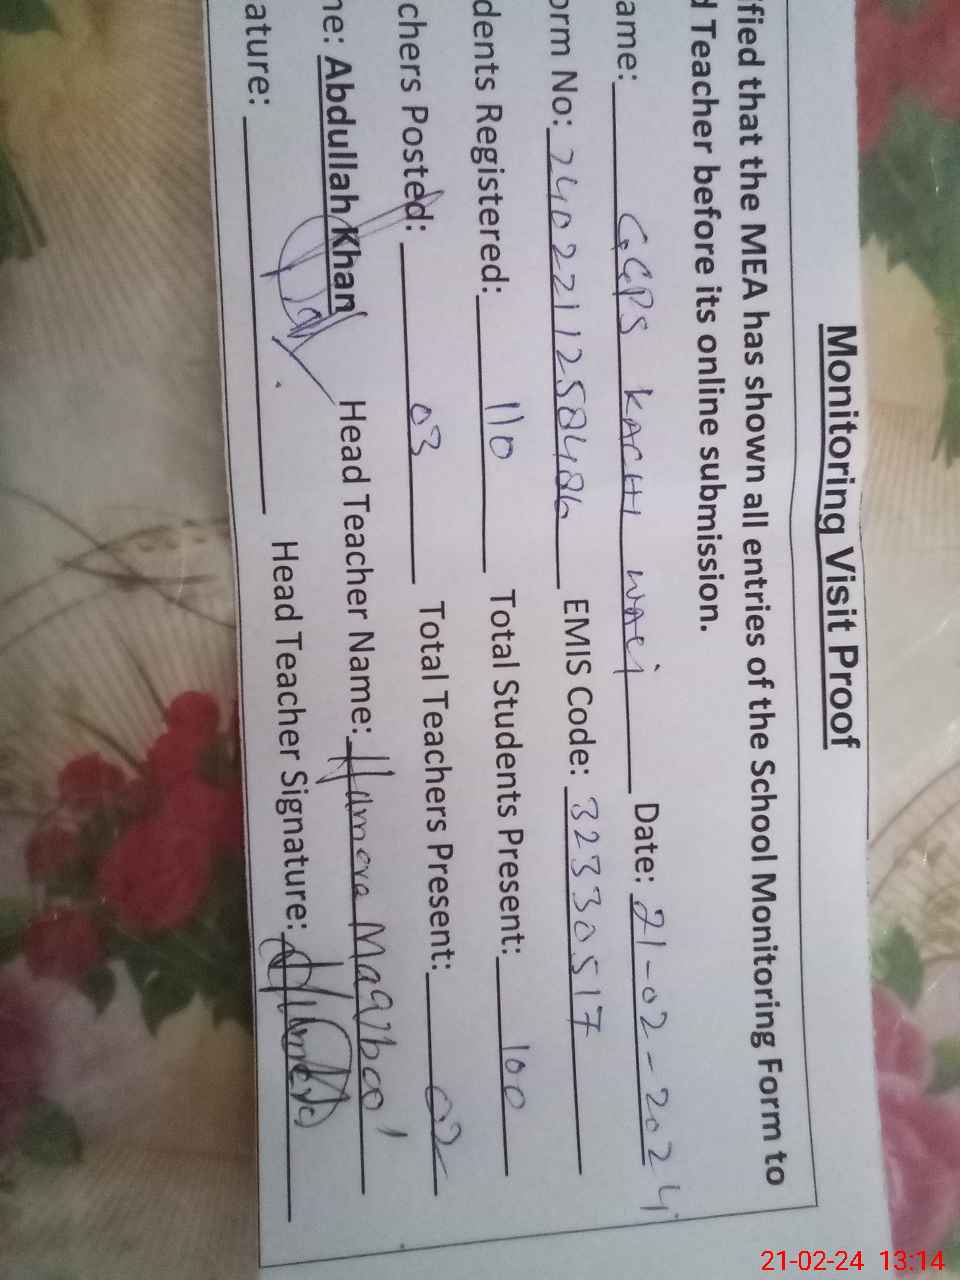 Monitoring Visit Proof
ified that the MEA has shown all entries of the School Monitoring Form to
d Teacher before its online submission.
ame: GGPS KACHI waci Date: 21-02-2024
orm No: 2402211258486 EMIS Code: 32330517
dents Registered: 110 Total Students Present: 100
chers Posted: 03 Total Teachers Present: 02
ne: Abdullah Khan Head Teacher Name: Humera Maqbool
ature: Head Teacher Signature: Humera
21-02-24 13:14